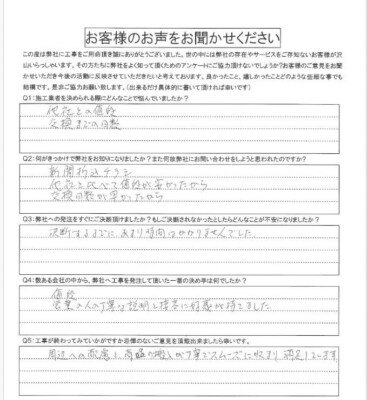 お客様のお声をお聞かせください
この度は弊社に工事をご用命頂き誠にありがとうございました。世の中には弊社の存在やサービスをご存知ないお客様が沢
山いらっしゃいます。その方たちに弊社をよく知って頂くためのアンケートにご協力頂けないでしょうか?お客様のご意見をお聞
かせいただき今後の活動に反映させていただきたいと考えております。良かったこと、嬉しかったことどのような些細な事でも
結構です。是非ご協力お願い致します。(出来るだけ具体的に書いて頂ければ幸いです)
Q1:施工業者を決められる際にどんなことで悩んでいましたか?
他社との価格
交換までの日数
Q2:何がきっかけで弊社をお知りになりましたか?また何故弊社にお問い合わせをしようと思われたのですか?
新聞折込チラシ
他社と比べて価格が安かったから
交換日数が早かったから
Q3:弊社への発注をすぐにご決断頂けましたか?もしご決断されなかったとしたらどんなことが不安になりましたか?
決断するまでに あまり時間はかかりませんでした。
Q4:数ある会社の中から、弊社へ工事を発注して頂いた一番の決め手は何でしたか?
価格
営業の人の丁寧な説明と接客に好感が持てました
Q5:工事が終わってみていかがですか忌憚のないご意見を頂戴出来ましたら幸いです。
周辺への配慮、商品の搬入が丁寧でスムーズに収まり 満足しています